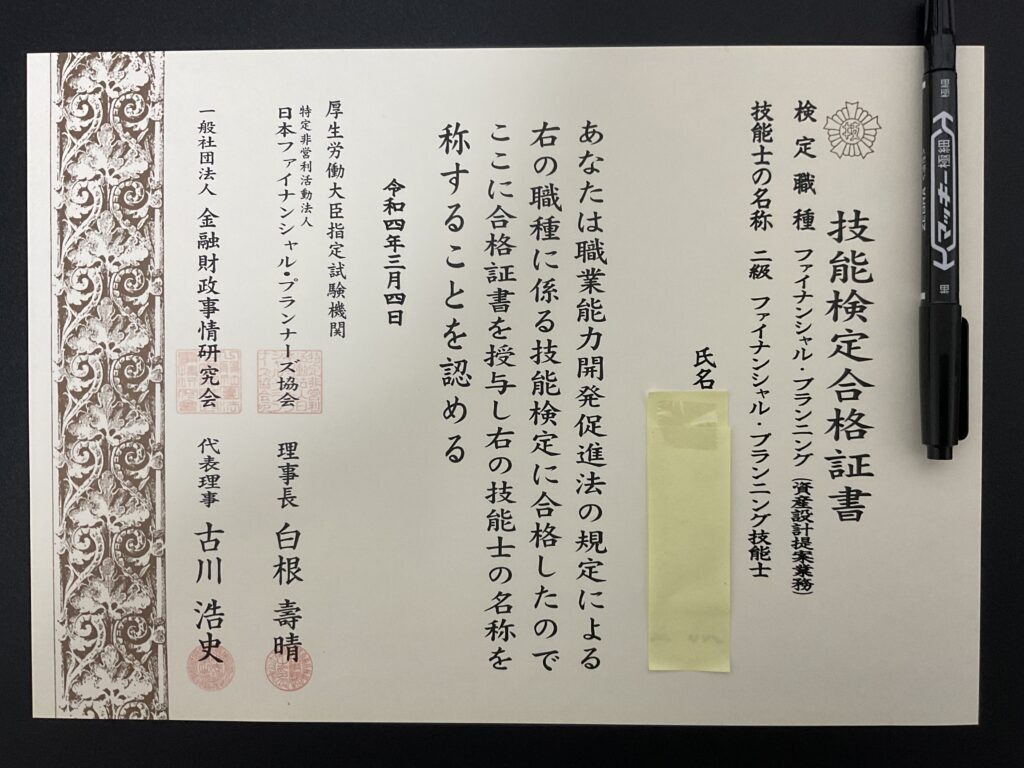 技能検定合格証書
検定職種 ファイナンシャル・プランニング(資産設計提案業務)
技能士の名称 二級 ファイナンシャル・プランニング技能士
氏名
あなたは職業能力開発促進法の規定による
右の職種に係る技能検定に合格したので
ここに合格証書を授与し右の技能士の名称を
称することを認める
令和四年三月四日
厚生労働大臣指定試験機関
特定非営利活動法人
日本ファイナンシャル・プランナーズ協会 理事長 白根 壽晴
一般社団法人 金融財政事情研究会 代表理事 古川 浩史
マッキー極細